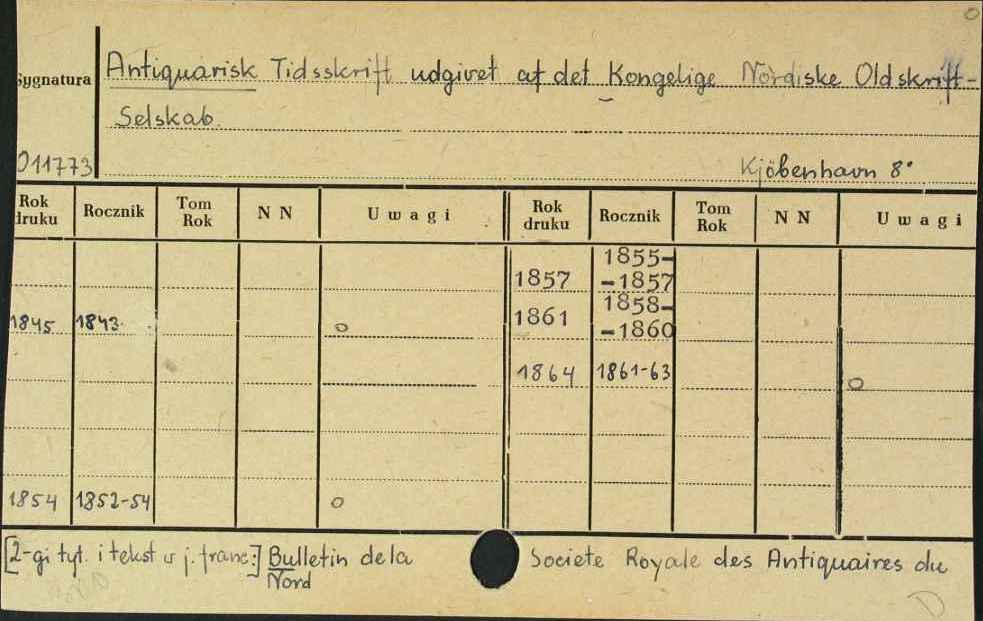 Sygnatura
Antiquarisk Tidsskrift udgivet af det Kongelige Nordiske Oldskrift-
Selskab.
011773
Kjöbenhavn 8°
Rok druku Rocznik Tom Rok N N Uwagi Rok druku Rocznik Tom Rok N N Uwagi
1857 1855-
-1857
1845 1843 o 1861 1858-
-1860
1864 1861-63 o
1854 1852-54 o
[2-gi tyt. i tekst w j. franc:] Bulletin de la Societe Royale des Antiquaires du
Nord